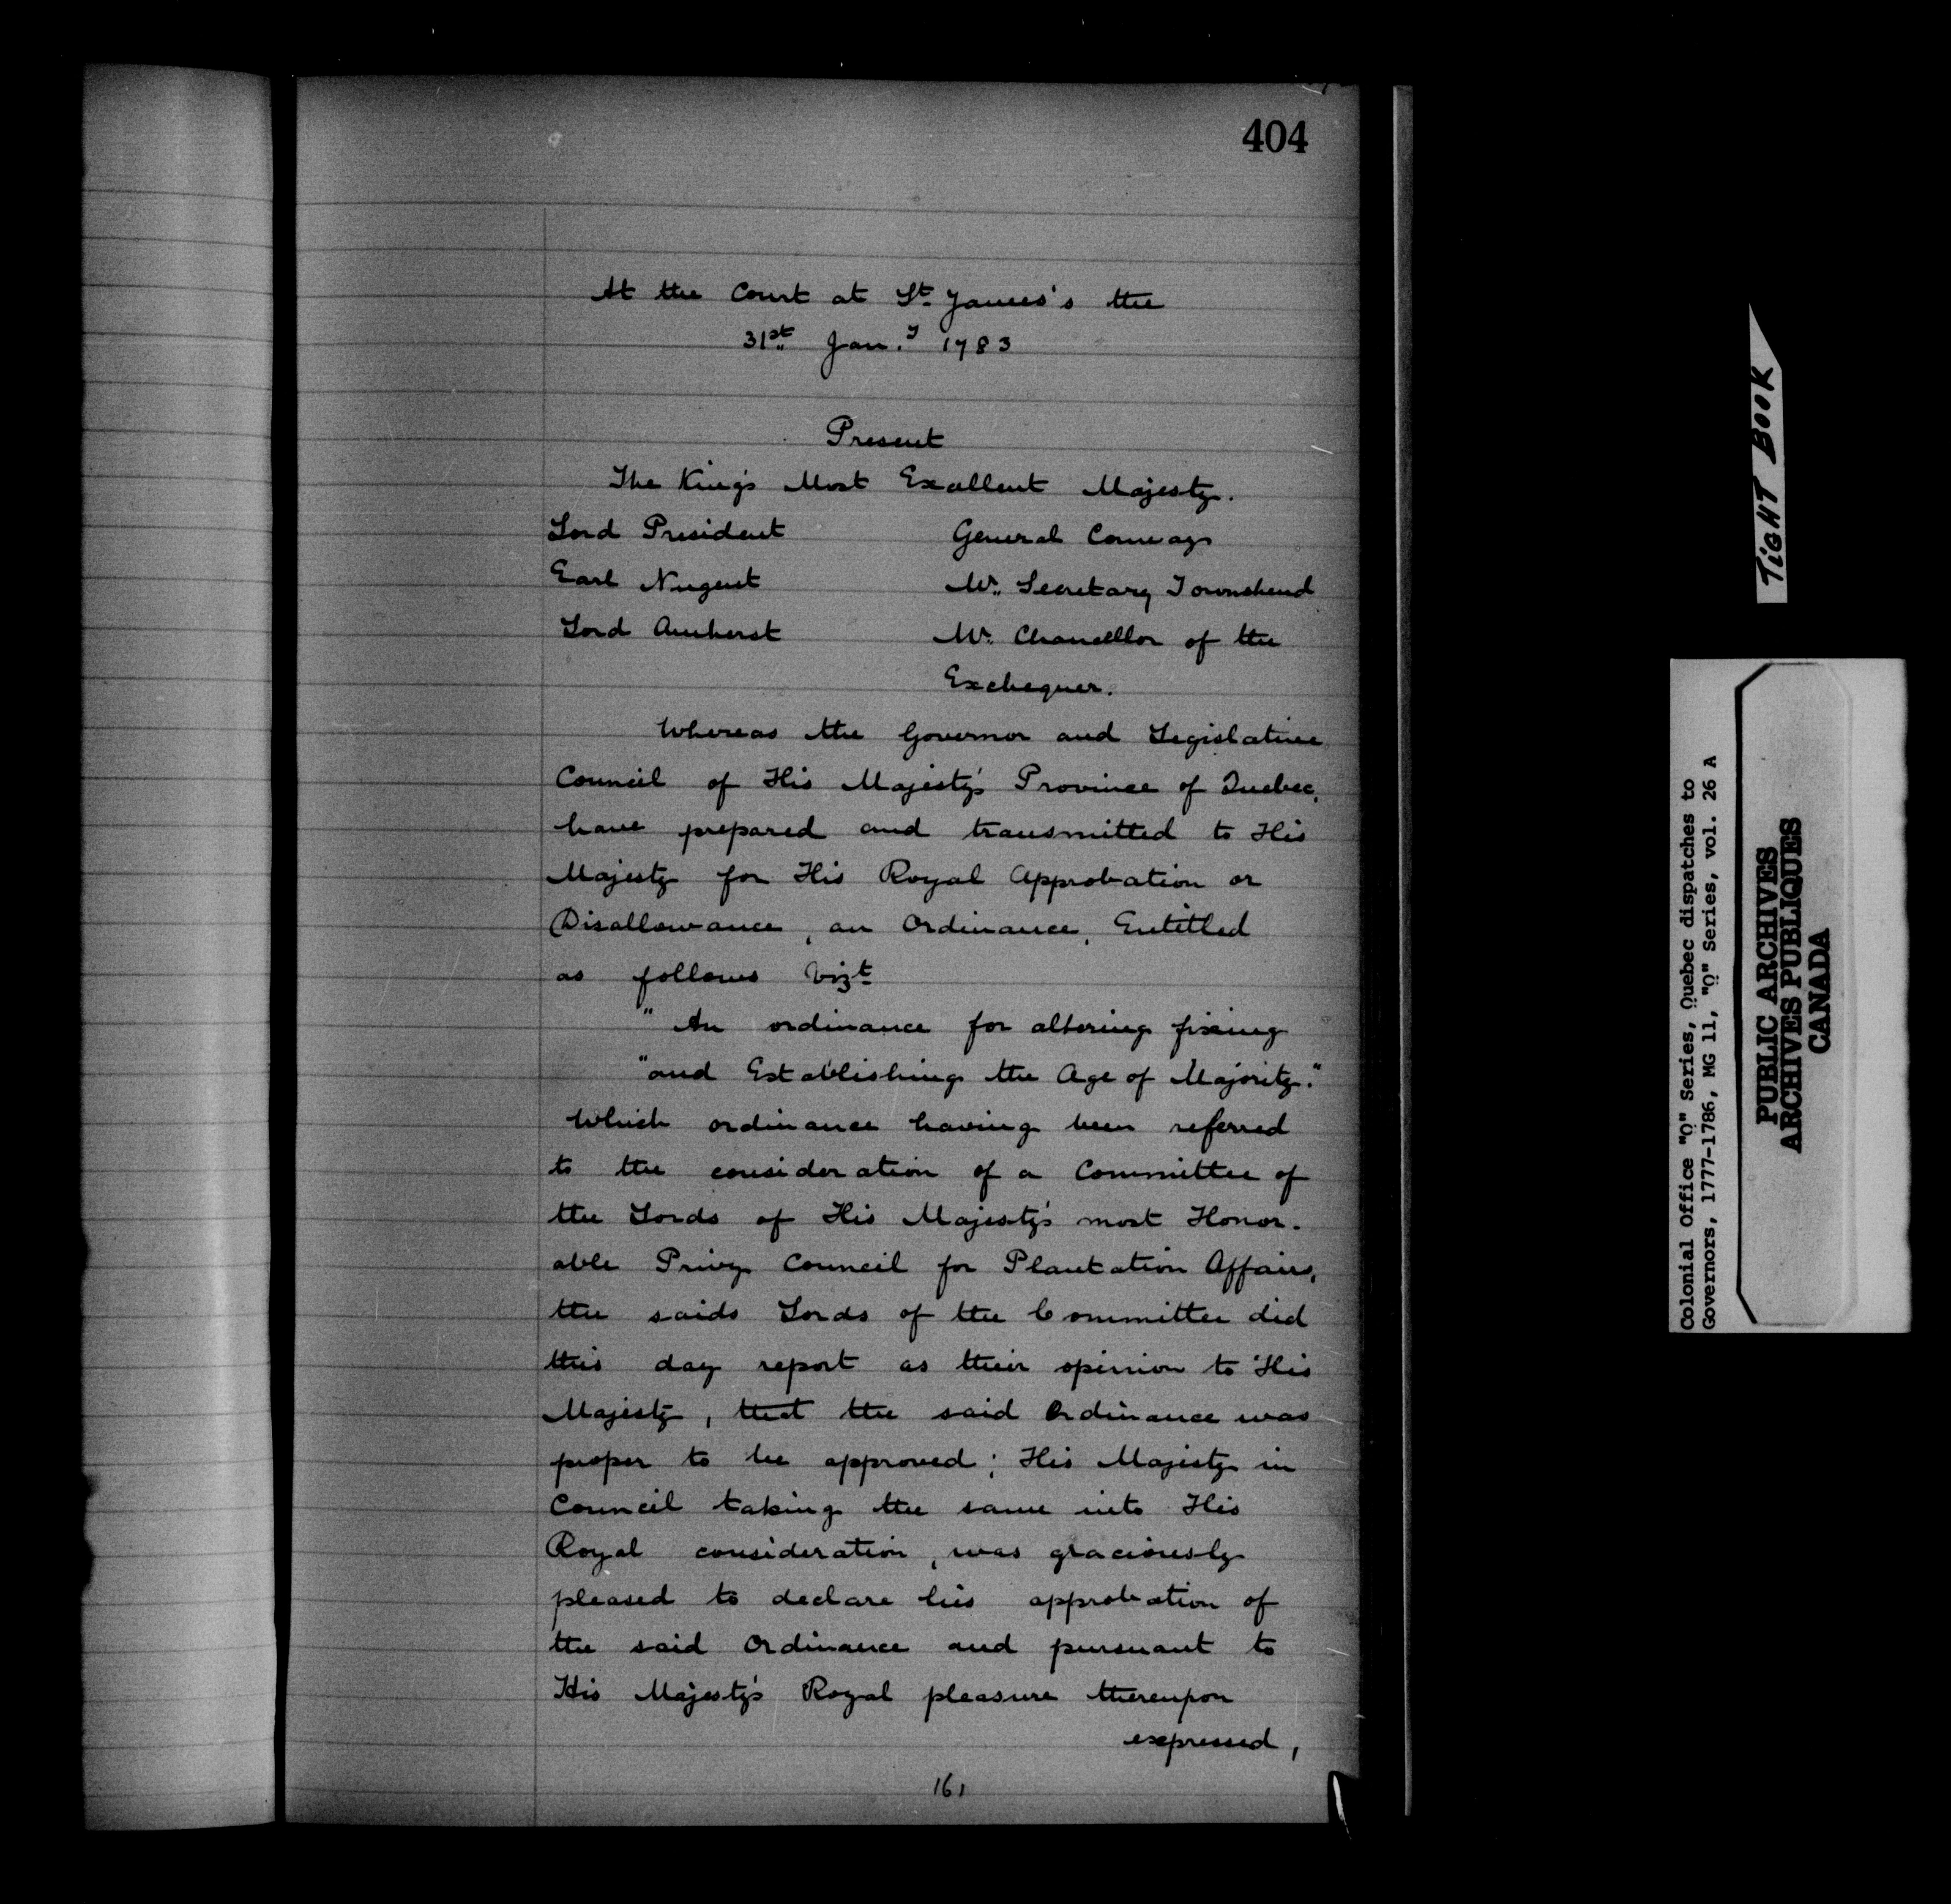 404
At the Court at St. James's the
31st Jan.y 1783
Present
The King's Most Excellent Majesty.
Lord President General Conway
Earl Nugent Mr. Secretary Townshend
Lord Amherst Mr. Chancellor of the
Exchequer.
Whereas the Governor and Legislative
Council of His Majesty's Province of Quebec,
have prepared and transmitted to His
Majesty for His Royal Approbation or
Disallowance, an Ordinance, Entitled
as follows Vizt
" An ordinance for altering fixing
"and Establishing the Age of Majority."
Which ordinance having been referred
to the consideration of a Committee of
the Lords of His Majesty's most Honor-
able Privy Council for Plantation Affairs,
the saids Lords of the Committee did
this day report as their opinion to His
Majesty, that the said Ordinance was
proper to be approved; His Majesty in
Council taking the same into His
Royal consideration, was graciously
pleased to declare his approbation of
the said Ordinance and pursuant to
His Majesty's Royal pleasure thereupon
expressed,
161
TIGHT BOOK
Colonial Office "Q" Series, Quebec dispatches to
Governors, 1777-1786, MG 11, "Q" Series, vol. 26 A
PUBLIC ARCHIVES
ARCHIVES PUBLIQUES
CANADA